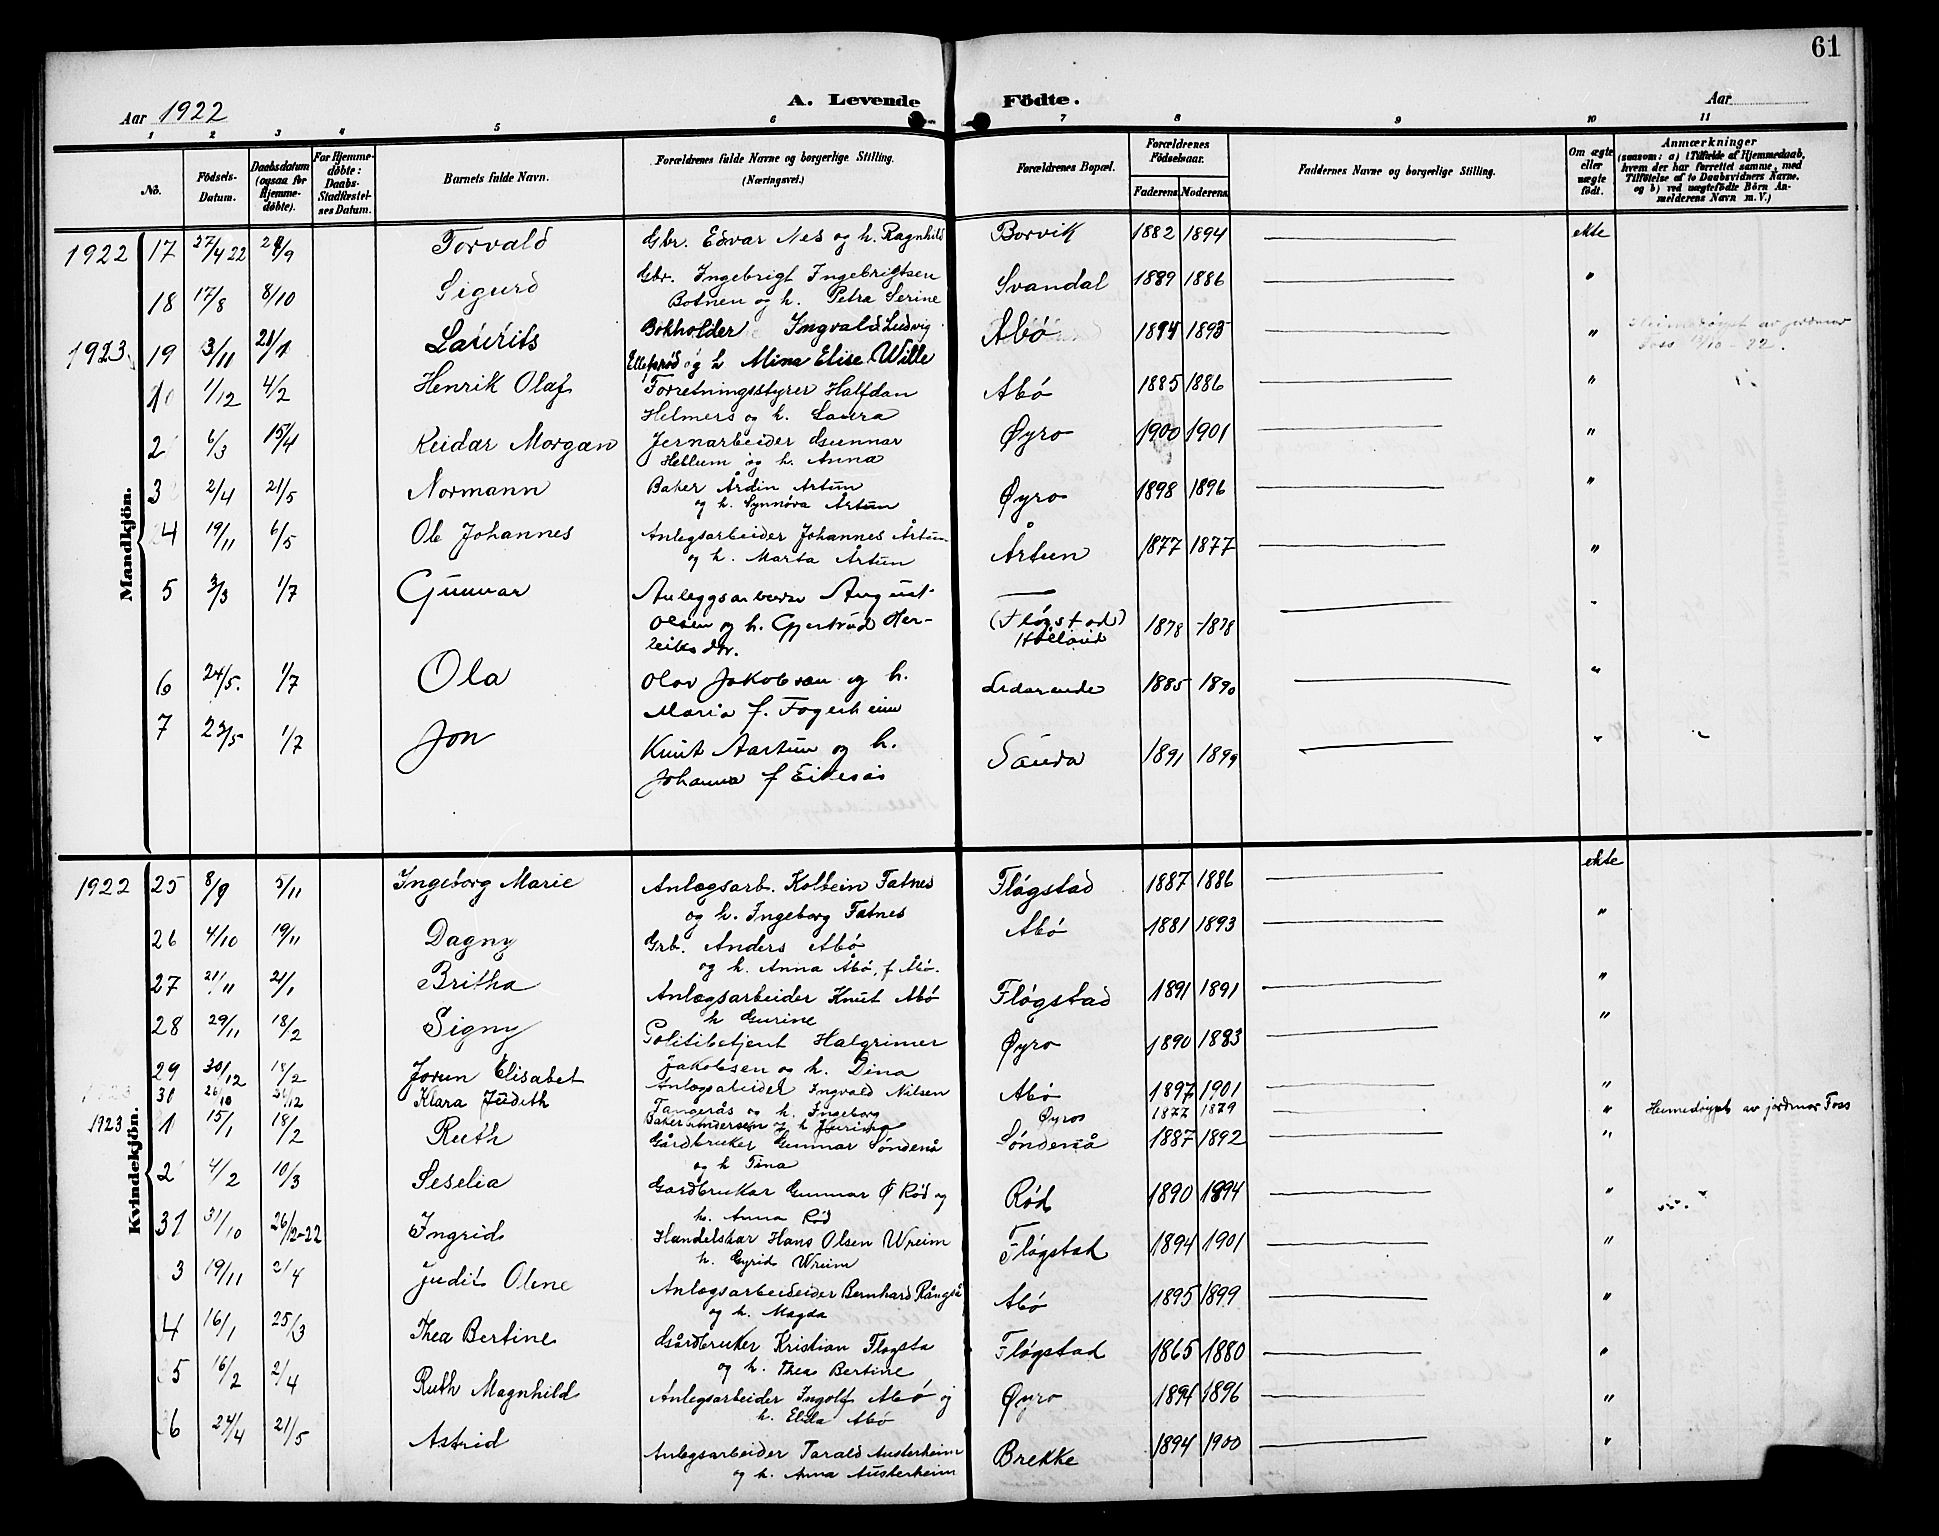 61
Aar 1922 A. Levende Födte. Aar
1 2 3 4 5 6 7 8 9 10 11
No. Födsels-Datum. Daabsdatum (ogsaa for Hjemme-döbte). For Hjemme-döbte: Daabs-Stadfæstel-ses Datum. Barnets fulde Navn. Forældrenes fulde Navne og borgerlige Stilling. (Næringsvei.) Forældrenes Bopæl. Forældrenes Födselsaar. Faderens Moderens Faddernes Navne og borgerlige Stilling. Om ægte eller uægte födt. Anmærkninger (saasom: a) i Tilfælde af Hjemmedaab, hvem der har forrettet samme, med Tilföielse af to Daabsvidners Navne, og b) ved uægtefödte Börn An-melderens Navn m. V.)
Mandkjön.
1922 17 27/4 22 /9 Torvald Gbr. Edvar Nes og h. Ragnhild Borvik 1882 1894 ekte
18 17/8 8/10 Sigurd Gbr. Ingebrigt Ingebrigtsen Svandal 1889 1886 "
Botnen og h. Petra Serine
1923 19 3/11 21/1 Laurits Bokholder Ingvald Ludvig Åbö 1894 1893 "
Ellefsrød og h Mina Elise Wille
10 1/12 4/2 Henrik Olaf Forretningsstyrer Halfdan Åbö 1885 1886 "
Helmers og h. Laura
2 6/3 15/4 Reidar Morgan Jernarbeider Gunnar Øyro 1900 1901 "
Heblum og h. Anna
3 2/4 21/5 Normann Baker Årdin Årtun Øyro 1898 1896 "
og h. Synnöva Årtun
4 19/11 6/5 Ole Johannes Anlegsarbeider Johannes Årtun Årtun 1877 1877 "
og h. Marta Årtun
5 3/3 1/7 Gunnar Anleggsarbeider August (Flógstad) 1878 1878 "
Olsen og h. Gjertrud Her- Hölland
leiksdtr.
6 24/5. 1/7 Ola Olav Jakobsen og h. 1885 1890 "
Maria f. Fagerheim
7 23/5 1/7 Jon Knut Aartun og h. Sauda 1891 1899 "
Johanna f Eikesås
Kvindekjön.
1922 25 8/9 5/11 Ingeborg Marie Anlægsarb. Kolbein Fatnes Flógstad 1887 1886 ekte
og h. Ingeborg Fatnes
26 4/10 19/11 Dagny Grb. Anders Åbö Åbö 1881 1893 "
og h. Anna Åbö, f Åbö.
27 21/11 21/1 Britha Anlægsarbeider Knut Åbö Flógstad 1891 1891 "
h Gurine
28 29/11 18/2 Signy Politibetjent Halgrimer Øyro 1890 1883 "
Jakobsen og h. Dina
29 30/12 18/2 Jorun Elisabet Anlægsabeider Ingvald Nilsen Åbö 1897 1901 "
Tangerås og h. Ingeborg
30 26/10 /12 Klara Judith Baker Andersen og h Jurina Øyro 1877 1879 " Hemedöypt av jordmor Foss
1923 1 15/1 18/2 Ruth Gårdbruker Gunnar Söndenå Söndenå 1887 1892 "
og h Tina
2 4/2 10/3 Seselia Gardbrukar Gunnar Ø Rød og Rød 1890 1894 "
h. Anna Rød
31 31/10 26/12-22 Ingrid Handelskar Hans Olsen Wreim Flógstad 1894 1901 "
h. Gyrid Wreim
3 19/11 2/4 Judit Oline Anlægsarbeideider Bernhard Rångså Åbö 1895 1899 "
og h. Magda
4 16/1 25/3 Thea Bertine Gårdbruker Kristian Flogsta Flógstad 1865 1880 "
og h. Thea Bertine
5 16/2 2/4 Ruth Magnhild Anlegsarbeider Ingolf Åbö og Øyro 1894 1896 "
h. Elida Åbö
6 24/4 21/5 Astrid Anlegsarbeider Tarald Austerheim Brekke 1894 1900 "
og h. Anna Austerheim